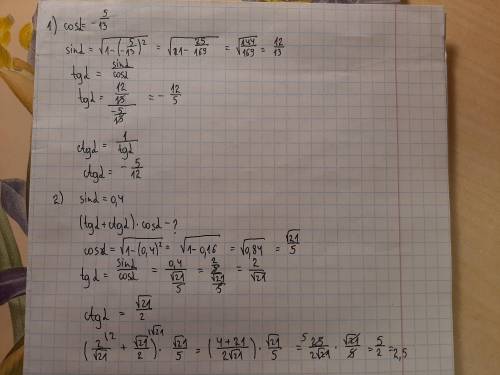 1) cosα = -5/13
sinα = √(1-(-5/13)²) = √(1-25/169) = √(144/169) = 12/13
tgα = sinα/cosα
tgα = (12/13)/(-5/13) = -12/5
ctgα = 1/tgα
ctgα = -5/12
2) sinα = 0,4
(tgα+ctgα)·cosα-?
cosα = √(1-(0,4)²) = √(1-0,16) = √0,84 = √21/5
tgα = sinα/cosα = 0,4/(√21/5) = (2/5)/(√21/5) = 2/√21
ctgα = √21/2
(2/√21 + √21/2)·√21/5 = ((4+21)/(2√21))·√21/5 = 25/(2√21)·√21/5 = 5/2 = 2,5